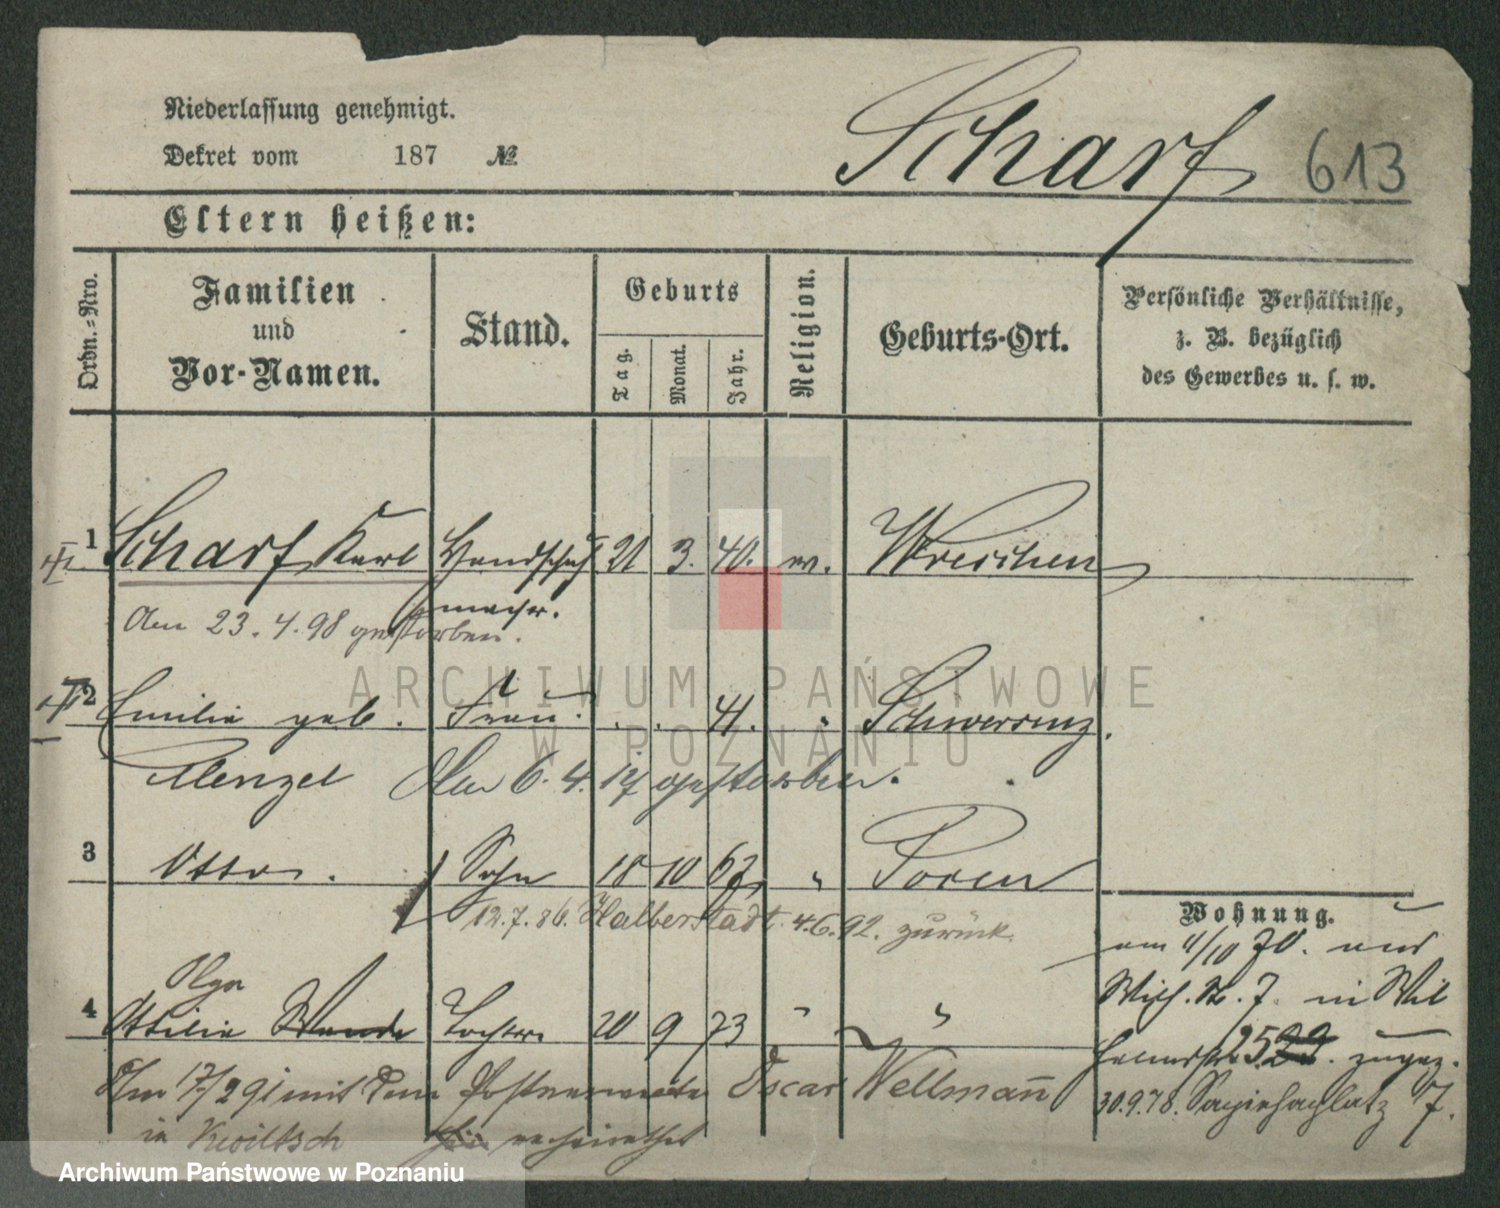 Niederlassung genehmigt.
Dekret vom 187 №
Scharf 613
Eltern heißen:
Ordn.=Nro.
Familien
und
Vor-Namen.
Stand.
Geburts
Tag.
Monat.
Jahr.
Religion.
Geburts-Ort.
Persönliche Verhältnisse,
z. B. bezüglich
des Gewerbes u. s. w.
1 Scharf Karl Handschuh 21 3. 40. ev. Wreschen
macher.
Am 23.4.98 gestorben.
2 Emilie geb. Frau . . 41. " Schwersenz.
Menzel Am 6.4.17 gestorben.
3 Otto. Sohn 18 10 67 " Posen
12.7.86. Halberstadt. 4.6.92. zurück.
Olga
4 Ottilie Wanda Tochter 20 9 73 " "
Am 17/2 91 mit dem Oscar Wellmann
in Kwiltsch verheirathet
Wohnung.
am 4/10 70. aus
Wilh. St. 7. in Wil
helmstr. 25 zugez.
30.9.78. Sapiehaplatz 7.
ARCHIWUM PAŃSTWOWE
W POZNANIU
Archiwum Państwowe w Poznaniu